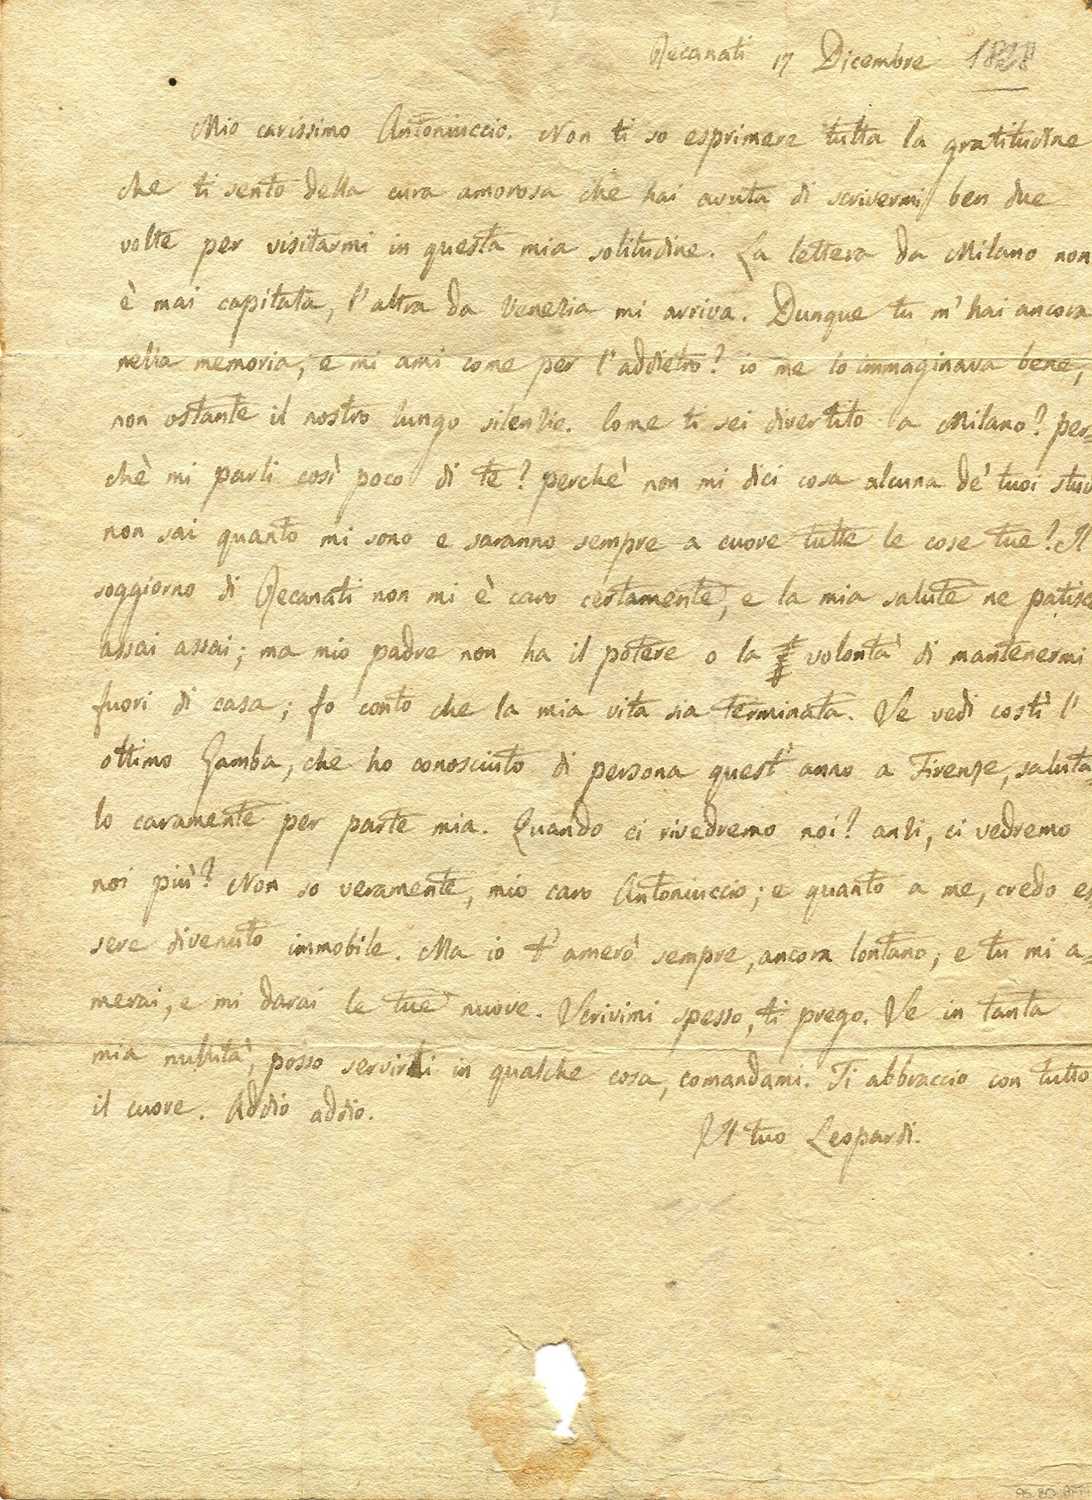 Recanati 17 Dicembre 1828
Mio carissimo Antoniuccio. Non ti so esprimere tutta la gratitudine
che ti sento della cura amorosa che hai avuta di scrivermi ben due
volte per visitarmi in questa mia solitudine. La lettera da Milano non
è mai capitata, l'altra da Venezia mi arriva. Dunque tu m'hai ancora
nella memoria, e mi ami come per l'addietro? io me lo immaginava bene,
non ostante il nostro lungo silenzio. Come ti sei divertito a Milano? per-
chè mi parli così poco di te? perchè non mi dici cosa alcuna de' tuoi stu
non sai quanto mi sono e saranno sempre a cuore tutte le cose tue? Il
soggiorno di Recanati non mi è caro certamente, e la mia salute ne patisce
assai assai; ma mio padre non ha il potere o la volontà di mantenermi
fuori di casa; fo conto che la mia vita sia terminata. Se vedi costì l'
ottimo Gamba, che ho conosciuto di persona quest'anno a Firenze, saluta-
lo caramente per parte mia. Quando ci rivedremo noi? anzi, ci vedremo
noi più? Non so veramente, mio caro Antoniuccio; e quanto a me, credo es
sere divenuto immobile. Ma io t'amerò sempre, ancora lontano; e tu mi a-
merai, e mi darai le tue nuove. Scrivimi spesso, ti prego. Se in tanta
mia nullità, posso servirti in qualche cosa, comandami. Ti abbraccio con tutto
il cuore. Addio addio.
Il tuo Leopardi.